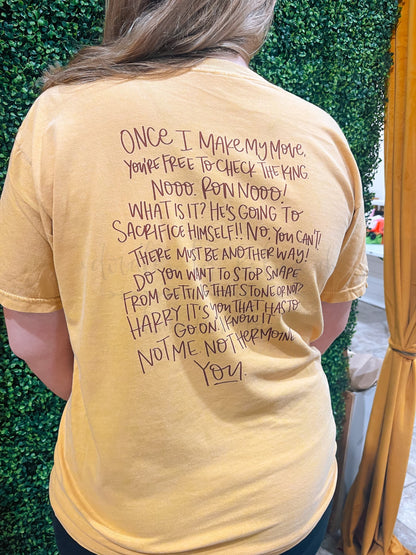 ONCE I MAKE MY MOVE,
YOU'RE FREE TO CHECK THE KING
NOOO, RON NOOO!
WHAT IS IT? HE'S GOING TO
SACRIFICE HIMSELF!! NO, YOU CAN'T!
THERE MUST BE ANOTHER WAY!
DO YOU WANT TO STOP SNAPE
FROM GETTING THAT STONE OR NOT?
HARRY IT'S YOU THAT HAS TO
GO ON, I KNOW IT
NOT ME NOT HERMOINE
YOU.